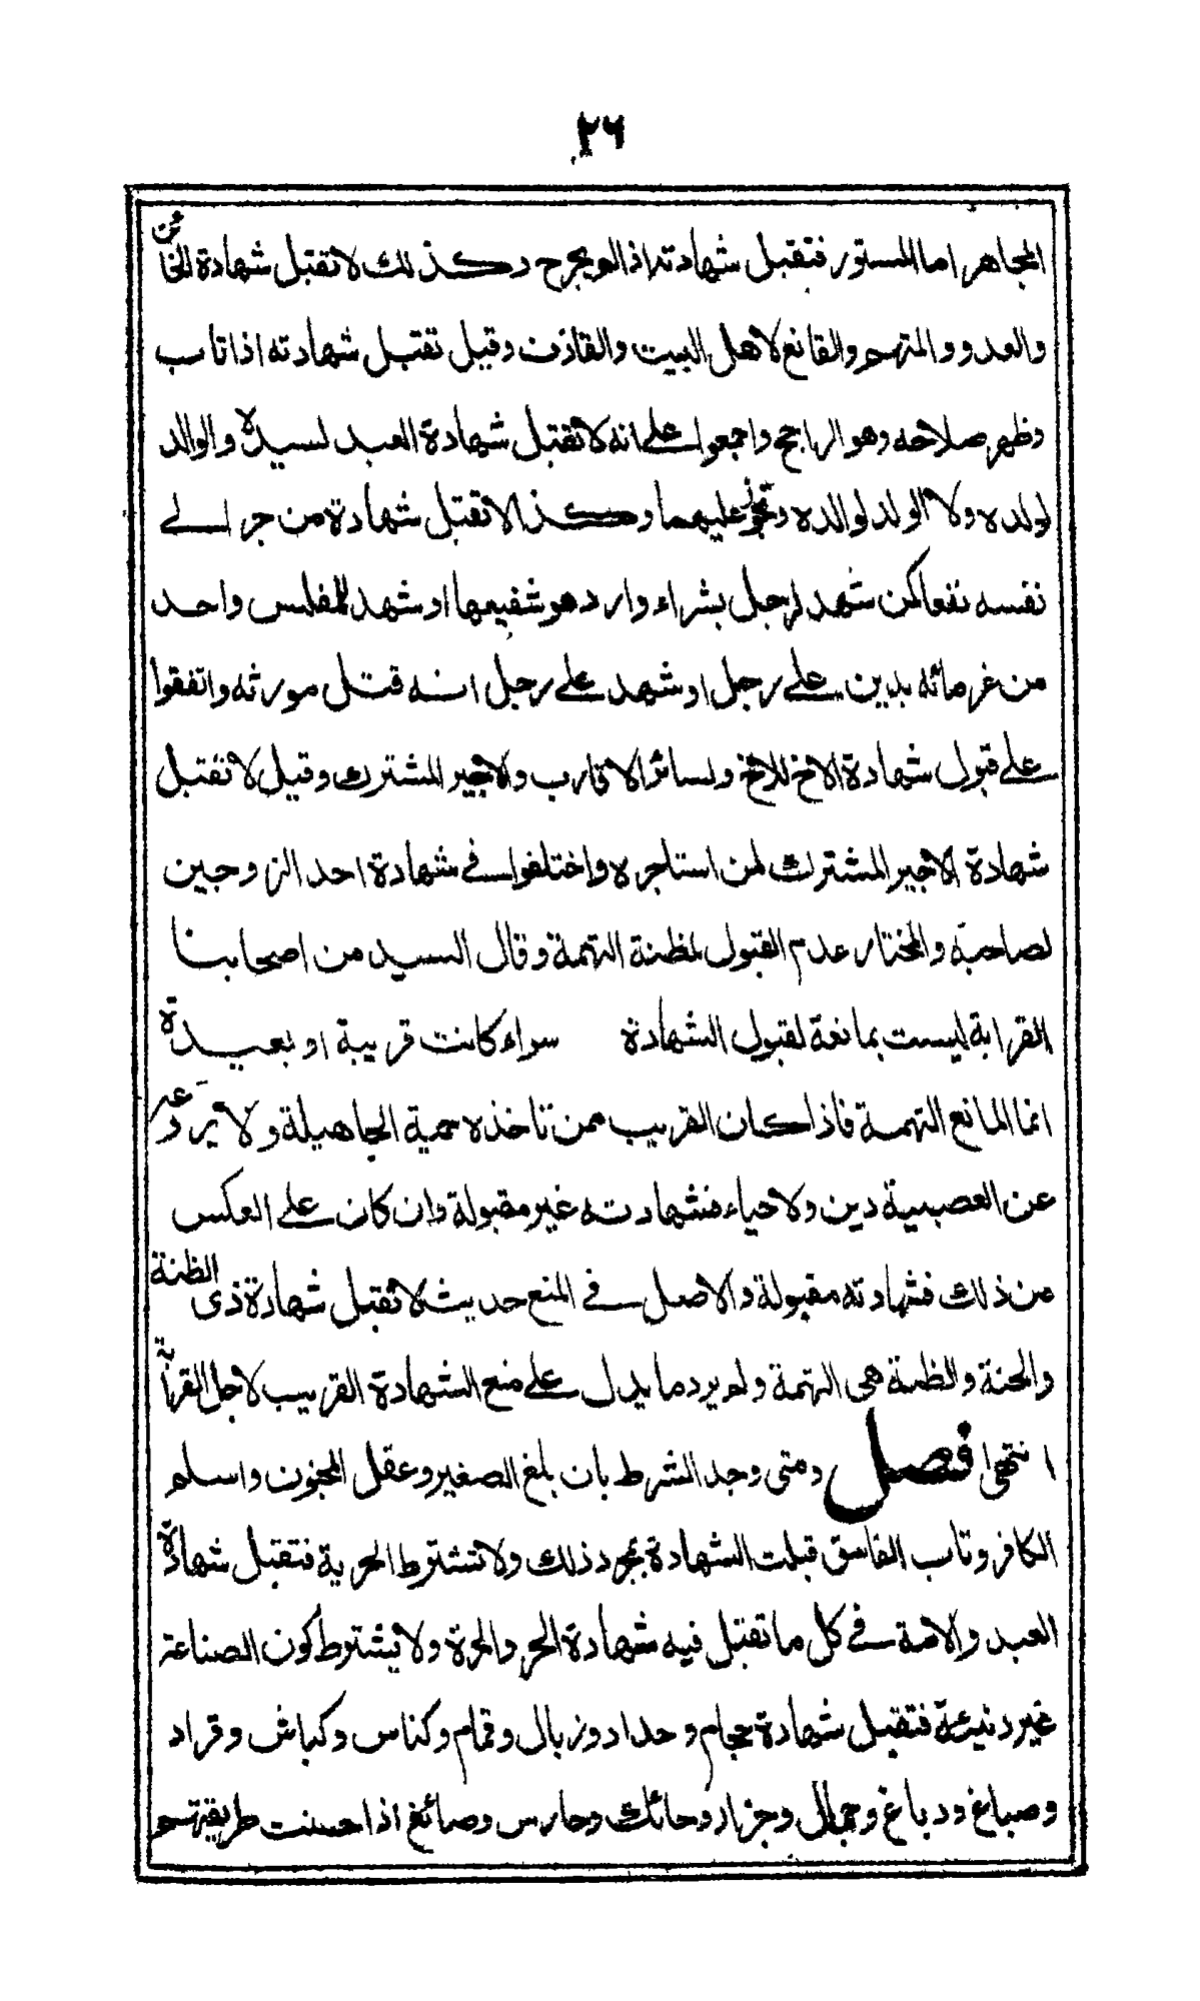 ٢٦
المجاهر اما المستور فتقبل شهادته اذا لم يجرح وكذلك لا تقبل شهادة الخائن
والعدو والمتهم والقانع لاهل البيت والقاذف وقيل تقبل شهادته اذا تاب
وظهر صلاحه وهو الراجح واجمعوا على انه لا تقبل شهادة العبد لسيده والوالد
لولده ولا الولد لوالده وتجوز عليهما وكذا لا تقبل شهادة من جر الى
نفسه نفعا كمن شهد لرجل بشراء دار وهو شفيعها او شهد للمفلس واحد
من غرمائه بدين على رجل او شهد على رجل انه قتل مورثه واتفقوا
على قبول شهادة الاخ للاخ ولسائر الاقارب والاجير المشترك وقيل لا تقبل
شهادة الاجير المشترك لمن استاجره واختلفوا في شهادة احد الزوجين
لصاحبه والمختار عدم القبول لمظنة التهمة وقال السيد من اصحابنا
القرابة ليست بمانعة لقبول الشهادة سواء كانت قريبة او بعيدة
انما المانع التهمة فاذا كان القريب ممن تاخذه حمية الجاهيلة ولا يردعه
عن العصبية دين ولا حياء فشهادته غير مقبولة وان كان على العكس
من ذلك فشهادته مقبولة والاصل في المنع حديث لا تقبل شهادة ذى الظنة
والحنة والظنة هى التهمة ولم يرد ما يدل على منع الشهادة القريب لاجل القرابة
انتهى فصل ومتى وجد الشرط بان بلغ الصغير وعقل المجنون واسلم
الكافر وتاب الفاسق قبلت الشهادة بمجرد ذلك ولا تشترط الحرية فتقبل شهادة
العبد والامة في كل ما تقبل فيه شهادة الحر والحرة ولا يشترط كون الصناعة
غير دنيئة فتقبل شهادة حجام وحداد وزبال وقمام وكناس وكباش وقراد
وصباغ ودباغ وجمال وجزار وحائك وحارس وصائغ اذا حسنت طريقتهم